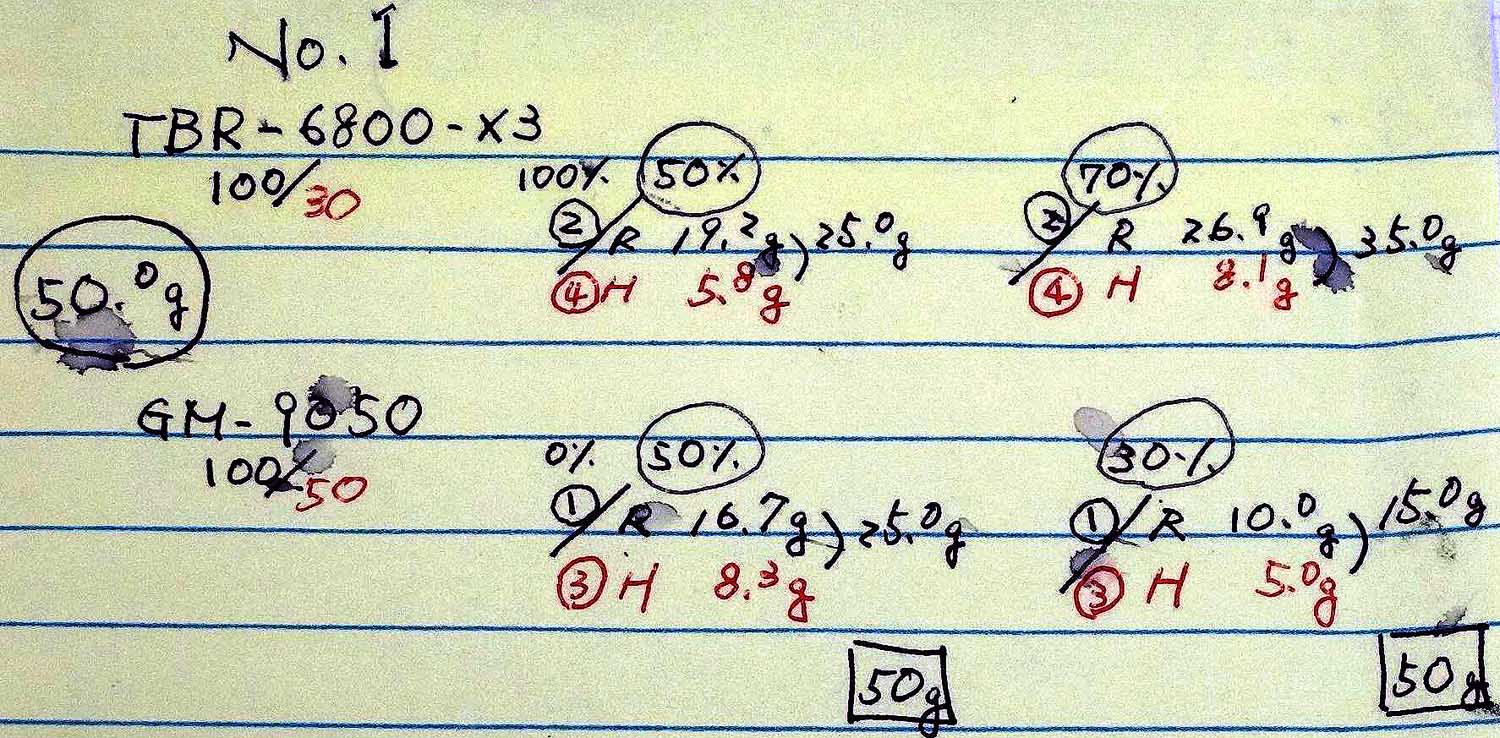 No. I
TBR-6800-X3
100/30
100% 50% 70%
② R 19.2g ) 25.0g ② R 26.9g ) 35.0g
50.0g
④ H 5.8g ④ H 8.1g
GM-9050
100/50
0% 50% 30%
① / R 16.7g ) 25.0g ① / R 10.0g ) 15.0g
③ H 8.3g ③ H 5.0g
50g 50g